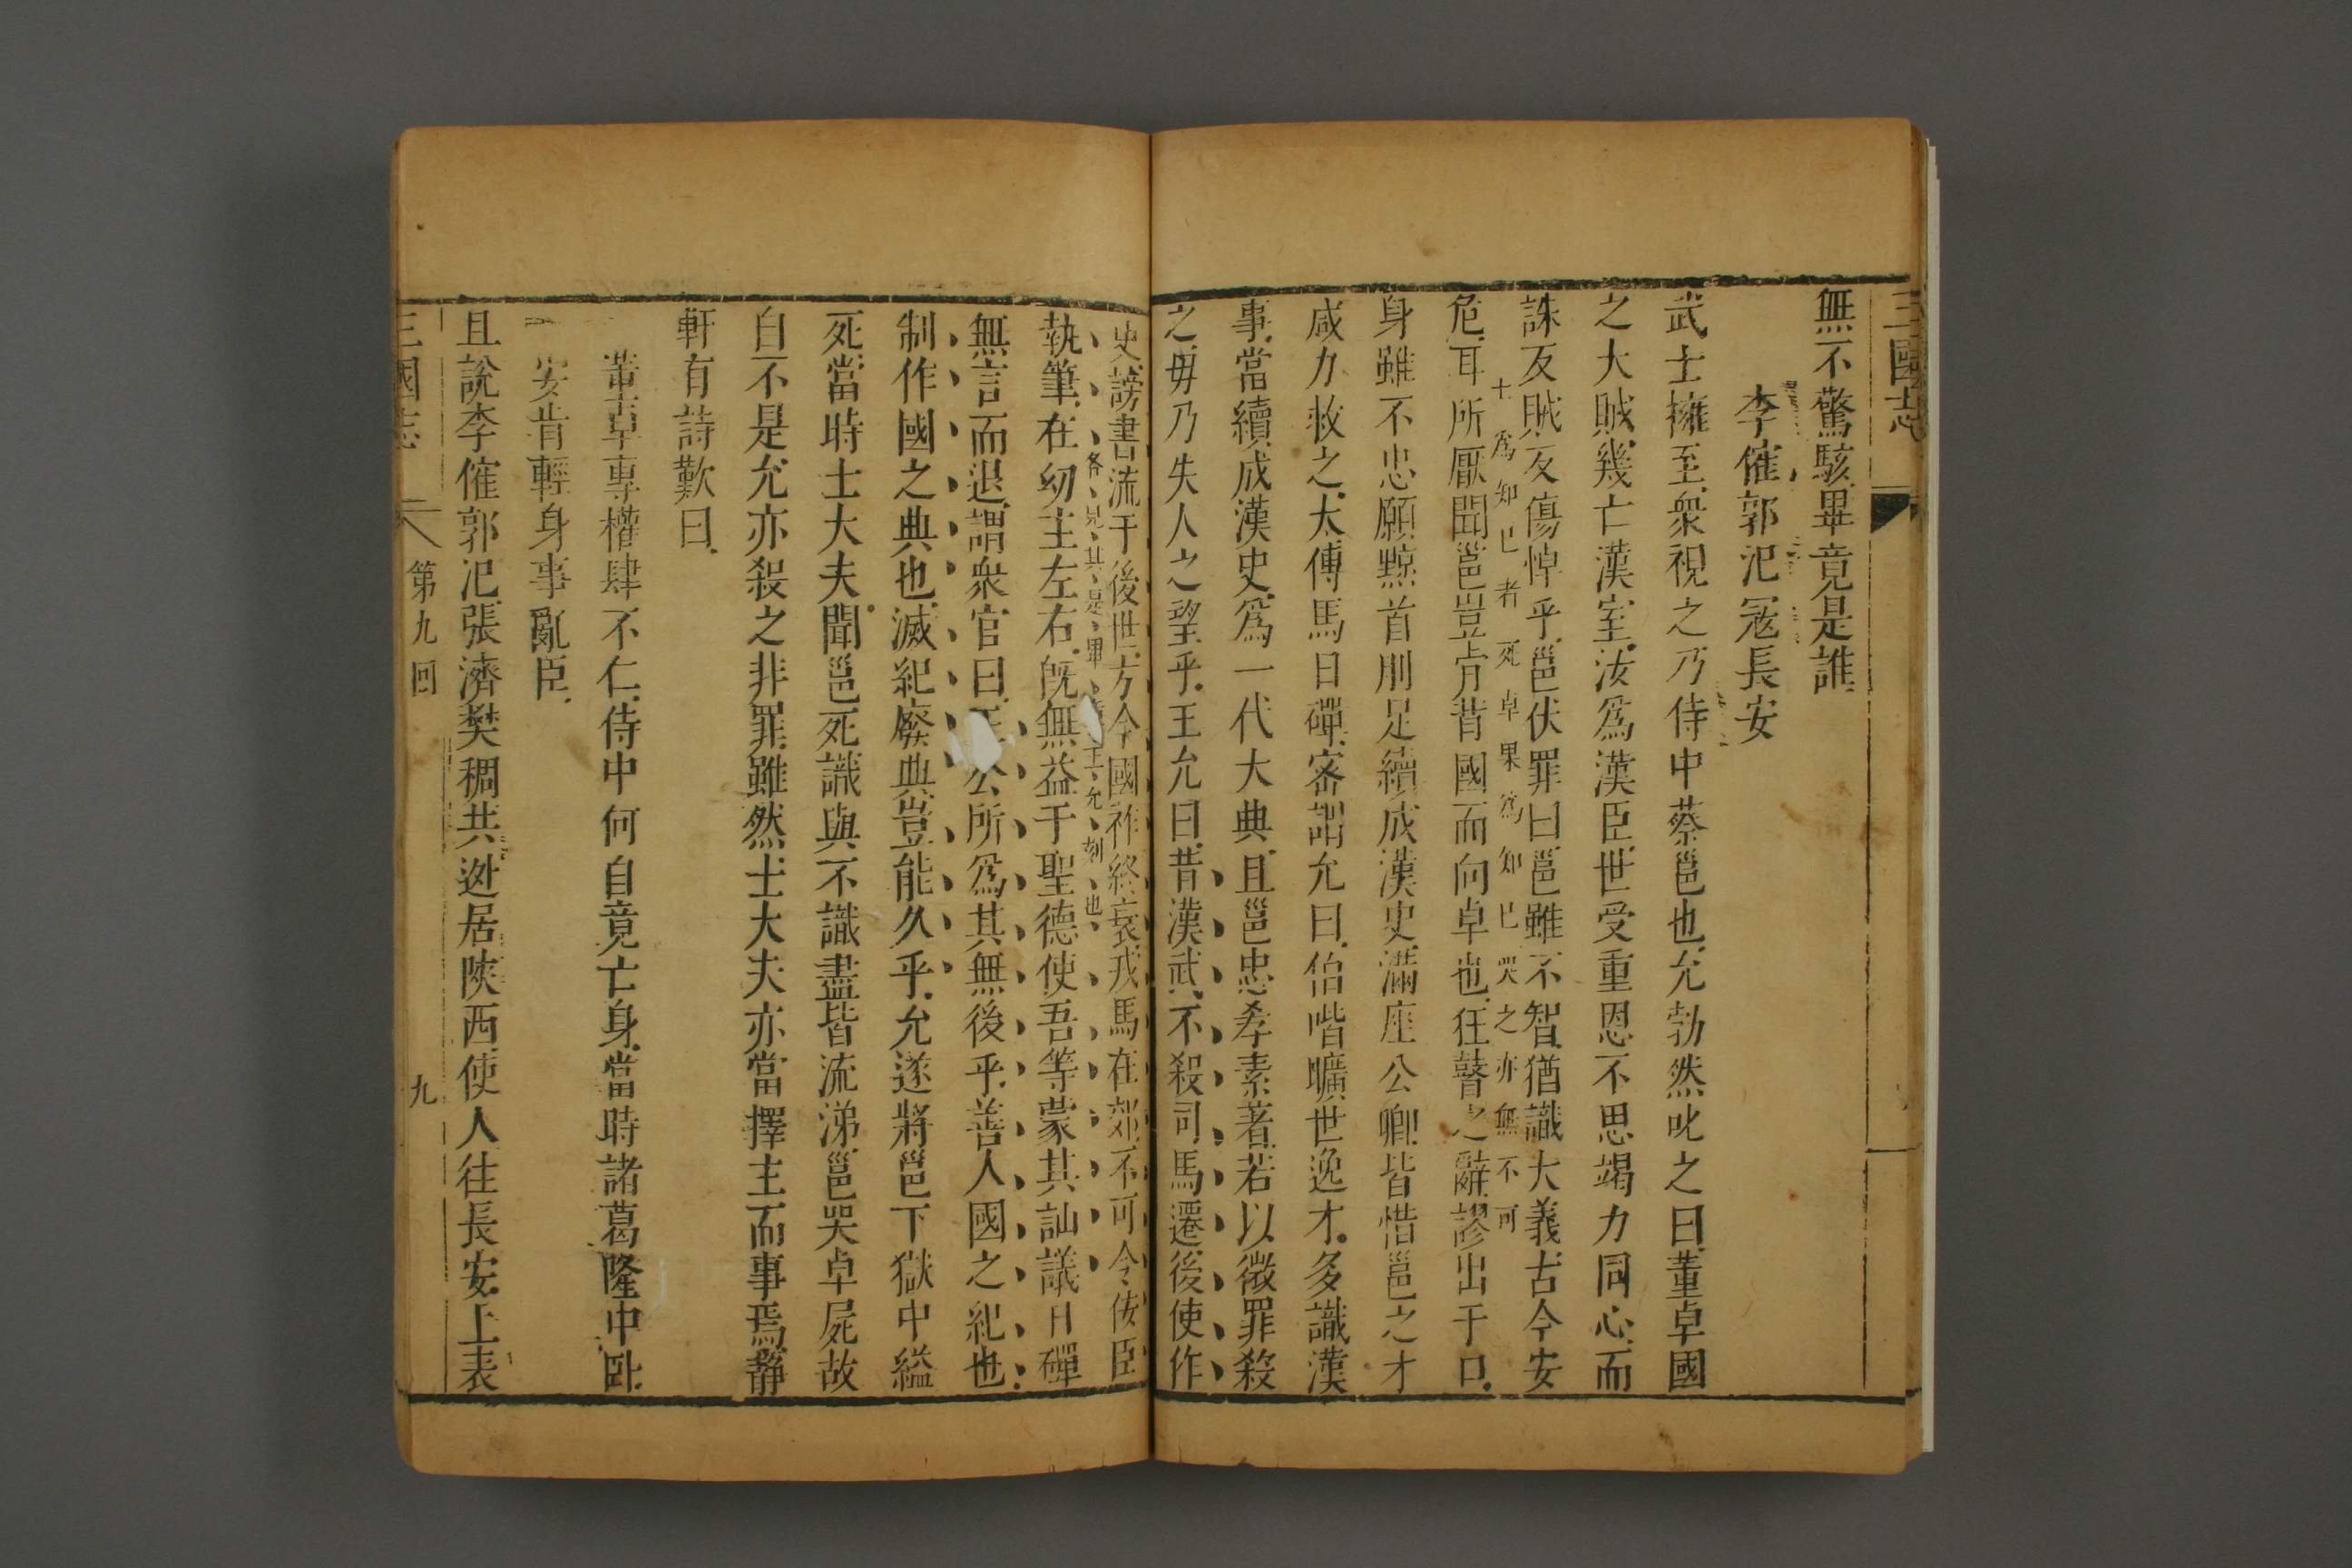 三國志
無不驚駭畢竟是誰
李傕郭汜冦長安
武士擁至衆視之乃侍中蔡邕也允勃然叱之曰董卓國
之大賊幾亡漢室汝爲漢臣世受重恩不思竭力同心而
誅反賊反傷悼乎邕伏罪曰邕雖不智猶識大義古今安
士爲知己者死卓果爲知己哭之亦無不可
危耳所厭聞邕豈肯背國而向卓也狂瞽之辭謬出于口
身雖不忠願黥首刖足續成漢史滿座公卿皆惜邕之才
咸力救之太傅馬日磾密謂允曰伯喈曠世逸才多識漢
事當續成漢史爲一代大典且邕忠孝素著若以微罪殺
之毋乃失人之望乎王允曰昔漢武不殺司馬遷後使作
史謗書流于後世方今國祚終衰戎馬在郊不可令佞臣
各見其是畢王允刻也
執筆在幼主左右既無益于聖德使吾等蒙其訕議日磾
無言而退謂衆官曰公所爲其無後乎善人國之紀也
制作國之典也滅紀廢典豈能久乎允遂將邕下獄中縊
死當時士大夫聞邕死識與不識盡皆流涕邕哭卓屍故
自不是允亦殺之非罪雖然士大夫亦當擇主而事焉靜
軒有詩歎曰
董卓專權肆不仁侍中何自竟亡身當時諸葛隆中臥
安肯輕身事亂臣
且說李傕郭汜張濟樊稠共逃居陝西使人往長安上表
三國志 第九回 九